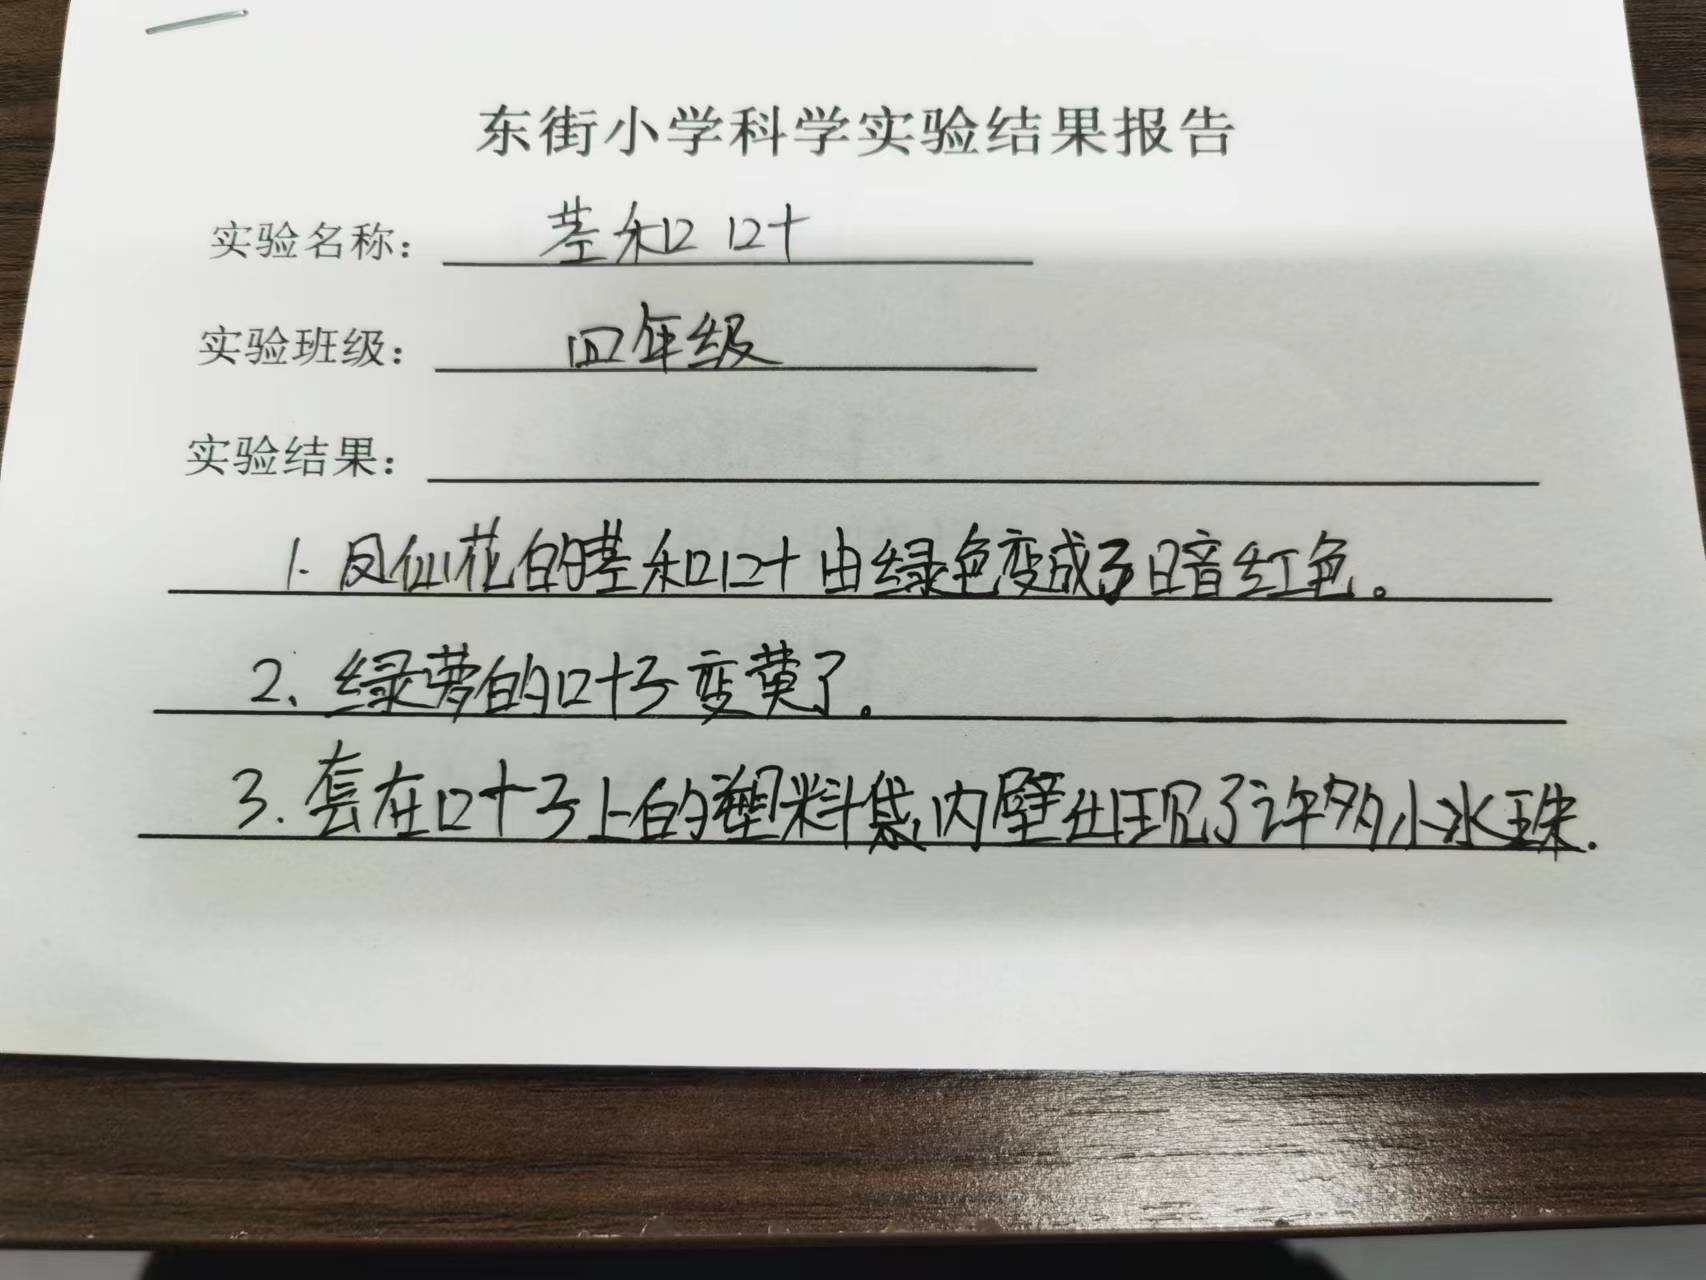 东街小学科学实验结果报告
实验名称：茎和叶
实验班级：四年级
实验结果：
1. 凤仙花的茎和叶由绿色变成了暗红色。
2、绿萝的叶子变黄了.
3. 套在叶子上的塑料袋,内壁出现了许多小水珠.